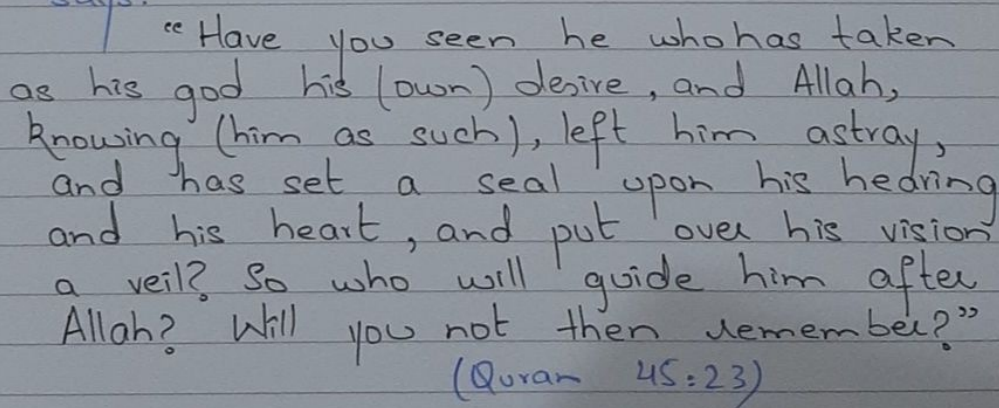 says:
"Have you seen he who has taken
as his god his (own) desire, and Allah,
knowing (him as such), left him astray,
and has set a seal upon his hearing
and his heart, and put over his vision
a veil? So who will guide him after
Allah? Will you not then remember?"
(Quran 45:23)